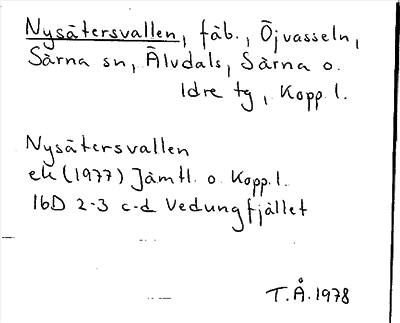 Nysätersvallen, fäb., Öjvasseln,
Särna sn, Älvdals, Särna o.
Idre tg, Kopp. l.
Nysätersvallen
ek (1977) Jämtl. o. Kopp. l.
16D 2-3 c-d Vedungfjället
T.Å. 1978